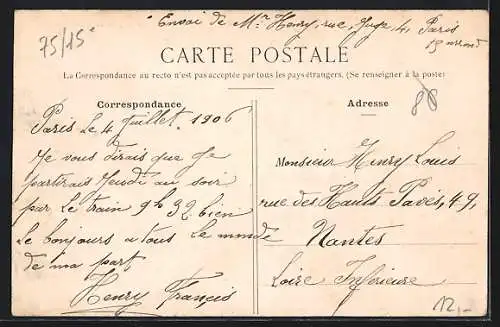 75/15e
Envoi de Mr Henry, rue 4, Paris
15 arrond
CARTE POSTALE
La Correspondance au recto n'est pas acceptée par tous les pays étrangers. (Se renseigner à la poste)
88
Correspondance
Paris le 4 Juillet 1906
Je vous dirais que je
partirais Jeudi au soir
par le train 9h 32 bien
le bonjours a tous le monde
de ma part
Henry François
Adresse
Monsieur Henry Louis
rue des Hauts Pavés, 49,
Nantes
Loire Inférieure
12,-